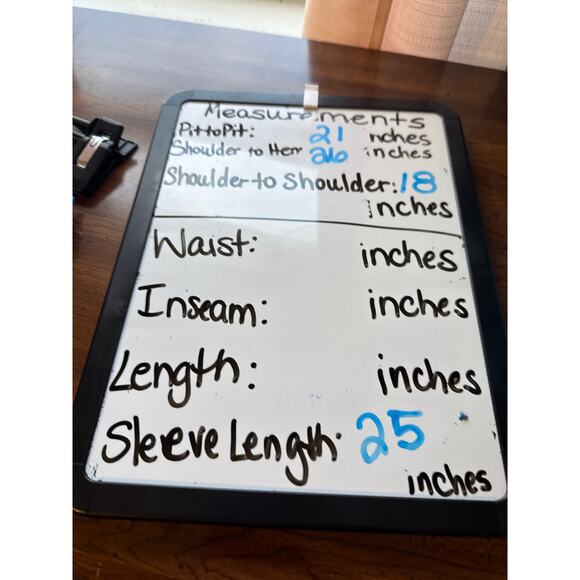 Measurements
Pit to Pit: 21 inches
Shoulder to Hem 26 inches
Shoulder to Shoulder: 18
inches
Waist: inches
Inseam: inches
Length: inches
Sleeve Length: 25
inches